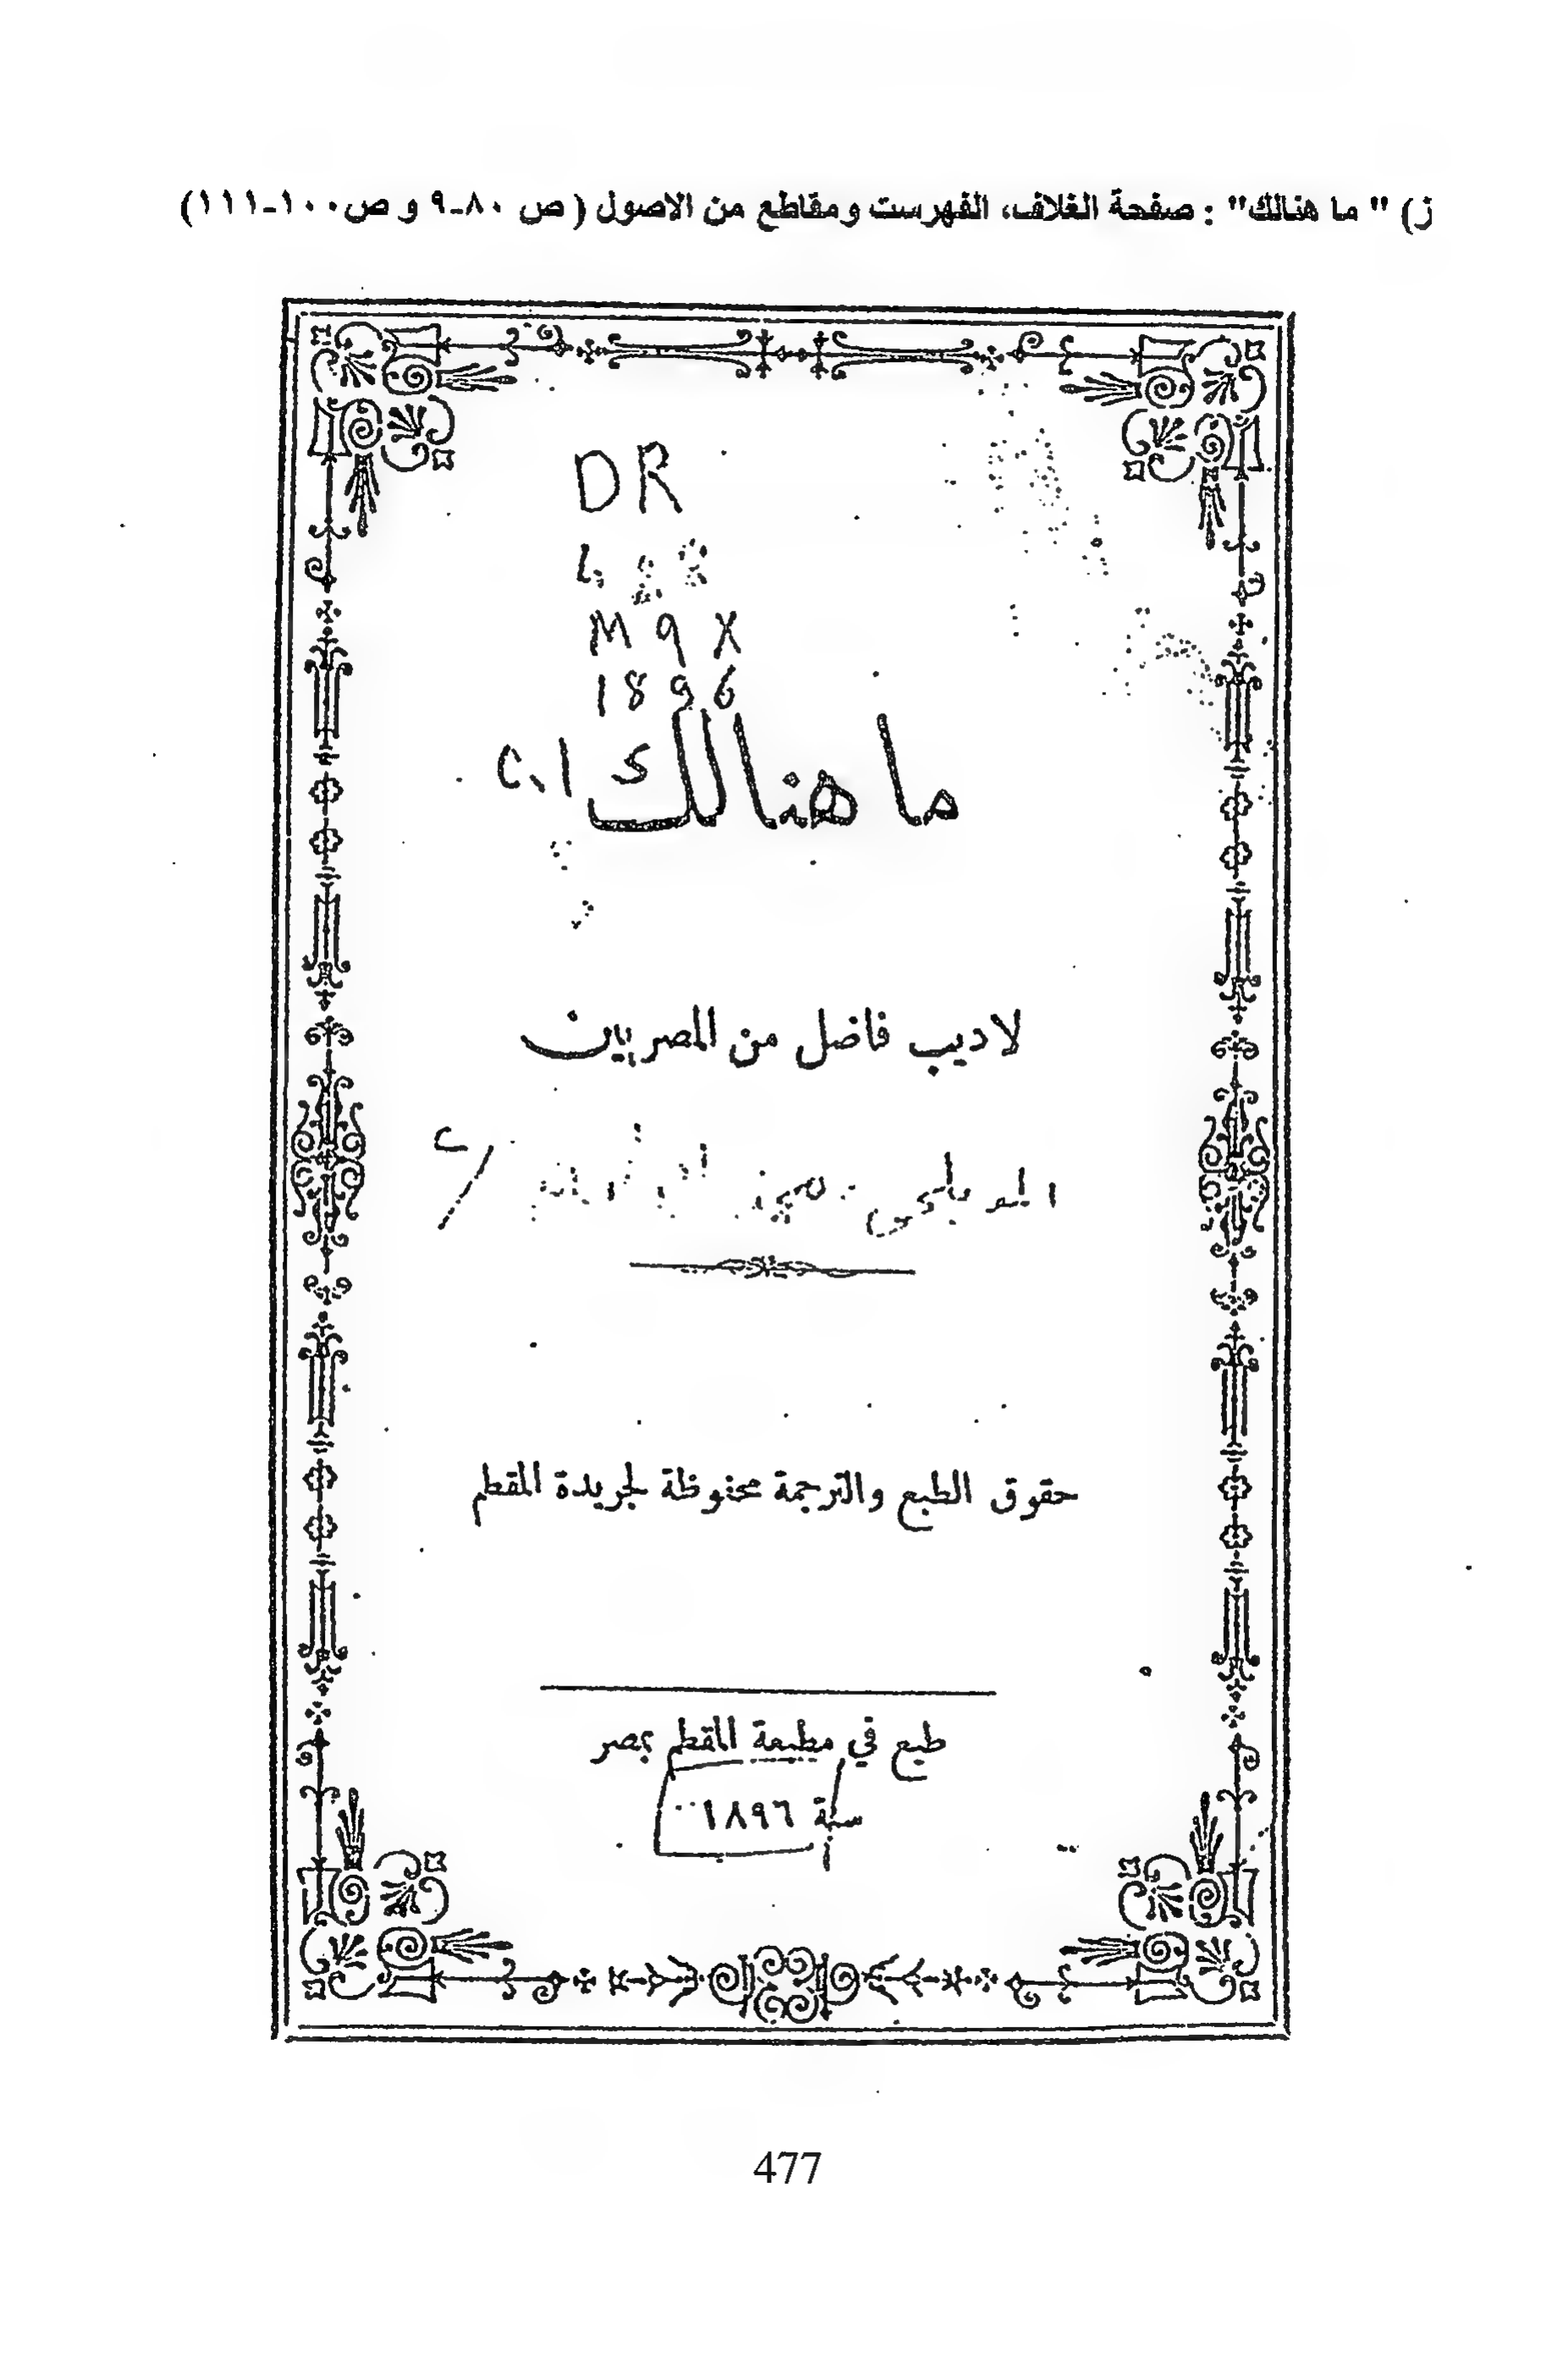 ز) " ما هنالك" : صفحة الغلاف، الفهرست ومقاطع من الاصول ( ص ٨٠-٩ و ص ١٠٠-١١١)
DR
M9X
1896
c.1
ما هنالك
لاديب فاضل من المصريين
المويلحي
حقوق الطبع والترجمة محفوظة لجريدة المقطم
طبع في مطبعة المقطم بمصر
سنة ١٨٩٦
477